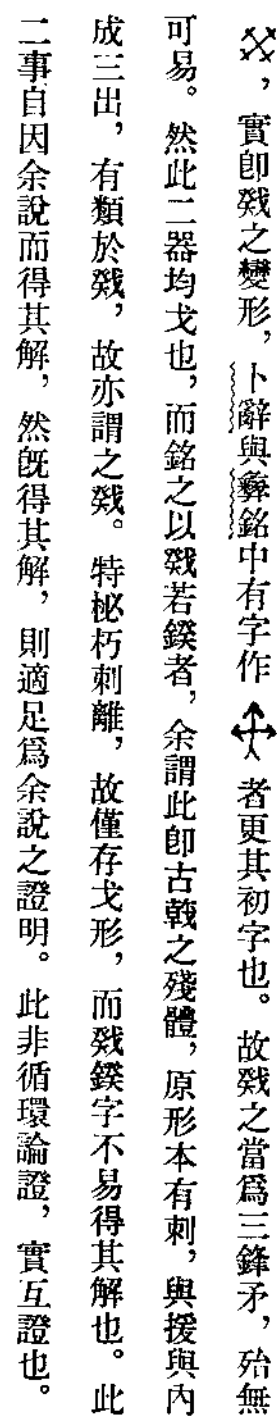 ，實卽戣之變形，卜辭與彝銘中有字作 者更其初字也。故戣之當爲三鋒矛，殆無
可易。然此二器均戈也，而銘之以戣若鍨者，余謂此卽古戟之殘體，原形本有刺，與援與內
成三出，有類於戣，故亦謂之戣。特柲朽刺離，故僅存戈形，而戣鍨字不易得其解也。此
二事自因余說而得其解，然旣得其解，則適足爲余說之證明。此非循環論證，實互證也。